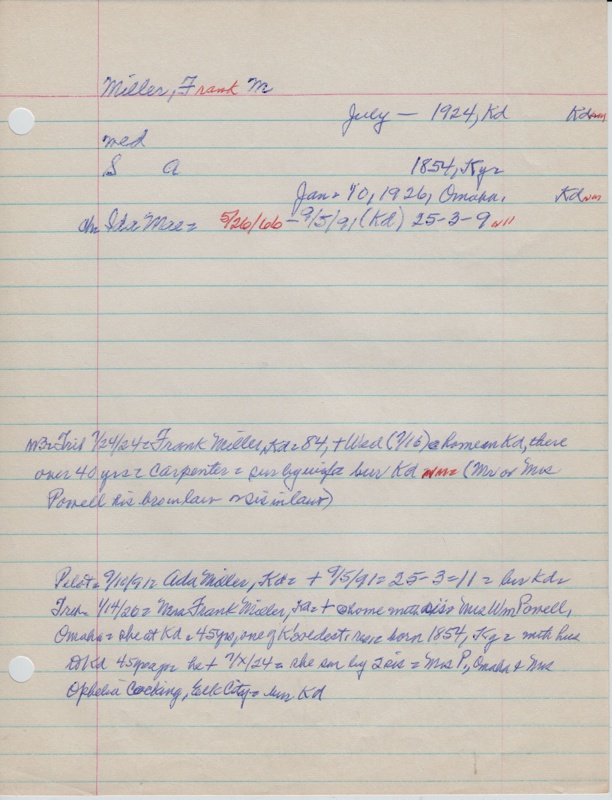 Miller, Frank M
July — 1924, Kd Kd NM
wed
S a 1854, Kyz
Jan = 10, 1926, Omaha, Kd NM
ch= Ida Mae = 5/26/66 - 9/5/91 (Kd) 25-3-9 NM
Trib 7/24/24 = Frank Miller, Kd = 84, + Wed (7/16) @ home in Kd, there
over 40 yrs = Carpenter = sur by wife bur Kd NM = (Mr or Mrs
Powell his bro in law or sis in law)
Pilot = 9/10/91 = Ada Miller, Kd = + 9/5/91 = 25-3-11 = bur Kd =
Trib = 1/14/26 = Mrs Frank Miller, Kd = + @ home sis = Mrs Wm Powell,
Omaha = she at Kd = 45 yrs, one of K's oldest born 1854, Ky = with hus
to Kd 45 yrs ago = he + 7/x/24 = she sur by 2 sis = Mrs P., Omaha & Mrs
Ophelia Cocking, Elk City = bur Kd